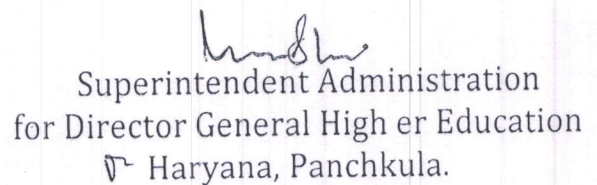 Superintendent Administration
for Director General High er Education
Haryana, Panchkula.